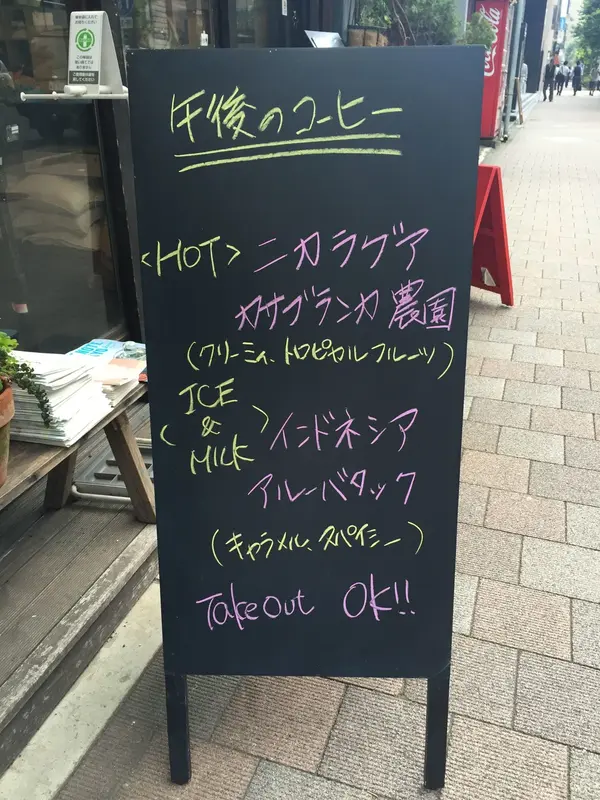 午後のコーヒー
<HOT> ニカラグア
カサブランカ 農園
(クリーミィ、トロピカルフルーツ)
<ICE
&
MILK> インドネシア
アルーバタック
(キャラメル、スパイシー)
Takeout OK!!
Coca-Cola